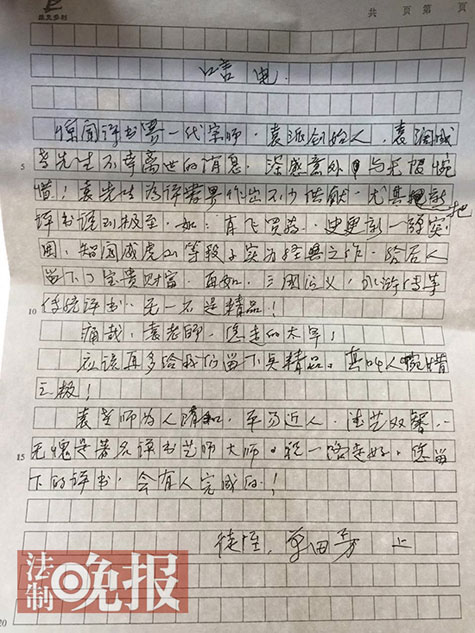 共 页 第 页
唁电
惊闻评书界一代宗师、袁派创始人、袁阔成
老先生不幸离世的消息,深感意外与无限惋
惜!袁先生为评书界作出不少供献,尤其是新
评书说到极至。如:肖飞买药、史更新一颗突 把
围、智闯威虎山等段子实为经典之作,给后人
留下了宝贵财富,再如,三国演义,水浒传等
传统评书,无一不是精品!
痛哉,袁老师,您走的太早!
应该再多给我们留下点精品,真叫人惋惜
之极!
袁老师为人随和、平易近人,德艺双馨……
无愧是著名评书艺师大师。祝一路走好,您留
下的评书,会有人完成的!
徒侄,单田芳 上
5
10
15
20
法制晚报